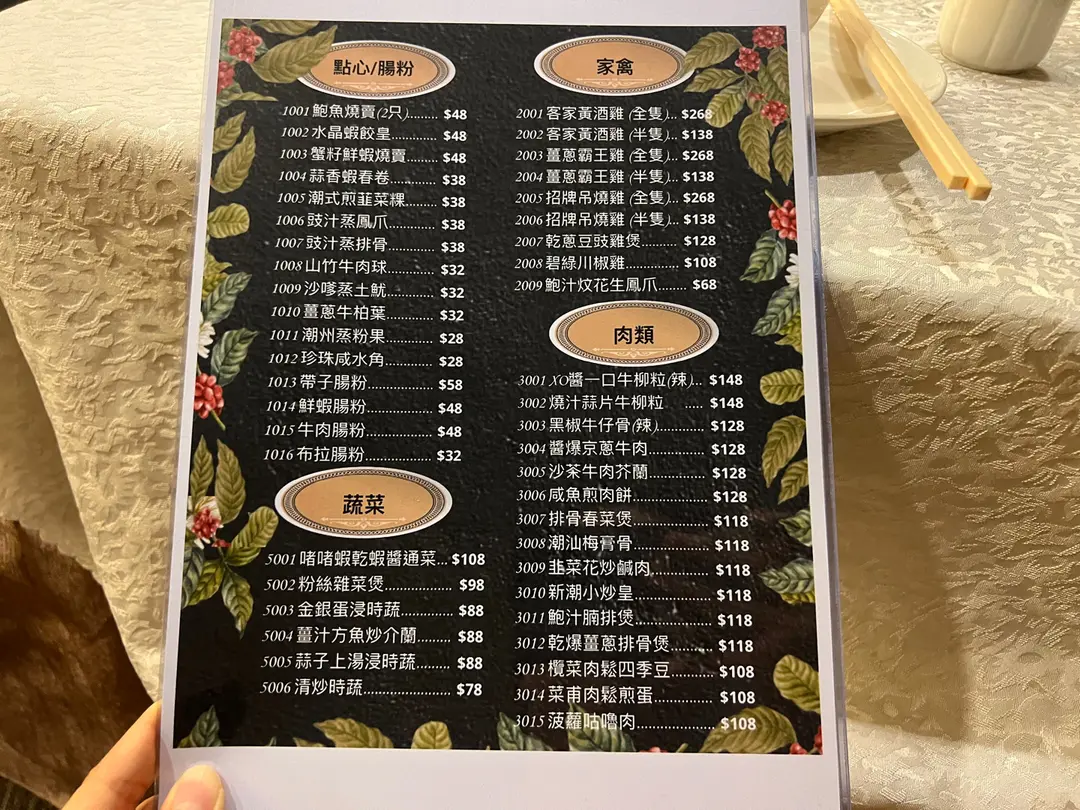 點心/腸粉
1001 鮑魚燒賣(2只)........ $48
1002 水晶蝦餃皇............ $48
1003 蟹籽鮮蝦燒賣......... $48
1004 蒜香蝦春卷............. $38
1005 潮式煎韮菜粿.......... $38
1006 豉汁蒸鳳爪............. $38
1007 豉汁蒸排骨............. $38
1008 山竹牛肉球............. $32
1009 沙嗲蒸土魷............. $32
1010 薑蔥牛柏葉............. $32
1011 潮州蒸粉果............. $28
1012 珍珠咸水角............. $28
1013 帶子腸粉.................. $58
1014 鮮蝦腸粉.................. $48
1015 牛肉腸粉.................. $48
1016 布拉腸粉.................. $32
蔬菜
5001 啫啫蝦乾蝦醬通菜... $108
5002 粉絲雜菜煲................... $98
5003 金銀蛋浸時蔬............... $88
5004 薑汁方魚炒介蘭......... $88
5005 蒜子上湯浸時蔬......... $88
5006 清炒時蔬........................ $78
家禽
2001 客家黃酒雞 (全隻)... $268
2002 客家黃酒雞 (半隻)... $138
2003 薑蔥霸王雞 (全隻)... $268
2004 薑蔥霸王雞 (半隻)... $138
2005 招牌吊燒雞 (全隻)... $268
2006 招牌吊燒雞 (半隻)... $138
2007 乾蔥豆豉雞煲.......... $128
2008 碧綠川椒雞............... $108
2009 鮑汁炆花生鳳爪........ $68
肉類
3001 XO醬一口牛柳粒(辣)... $148
3002 燒汁蒜片牛柳粒 ..... $148
3003 黑椒牛仔骨(辣)............. $128
3004 醬爆京蔥牛肉................ $128
3005 沙茶牛肉芥蘭................ $128
3006 咸魚煎肉餅..................... $128
3007 排骨春菜煲..................... $118
3008 潮汕梅膏骨..................... $118
3009 韭菜花炒鹹肉................ $118
3010 新潮小炒皇..................... $118
3011 鮑汁腩排煲..................... $118
3012 乾爆薑蔥排骨煲........... $118
3013 欖菜肉鬆四季豆........... $108
3014 菜甫肉鬆煎蛋................ $108
3015 菠蘿咕嚕肉..................... $108